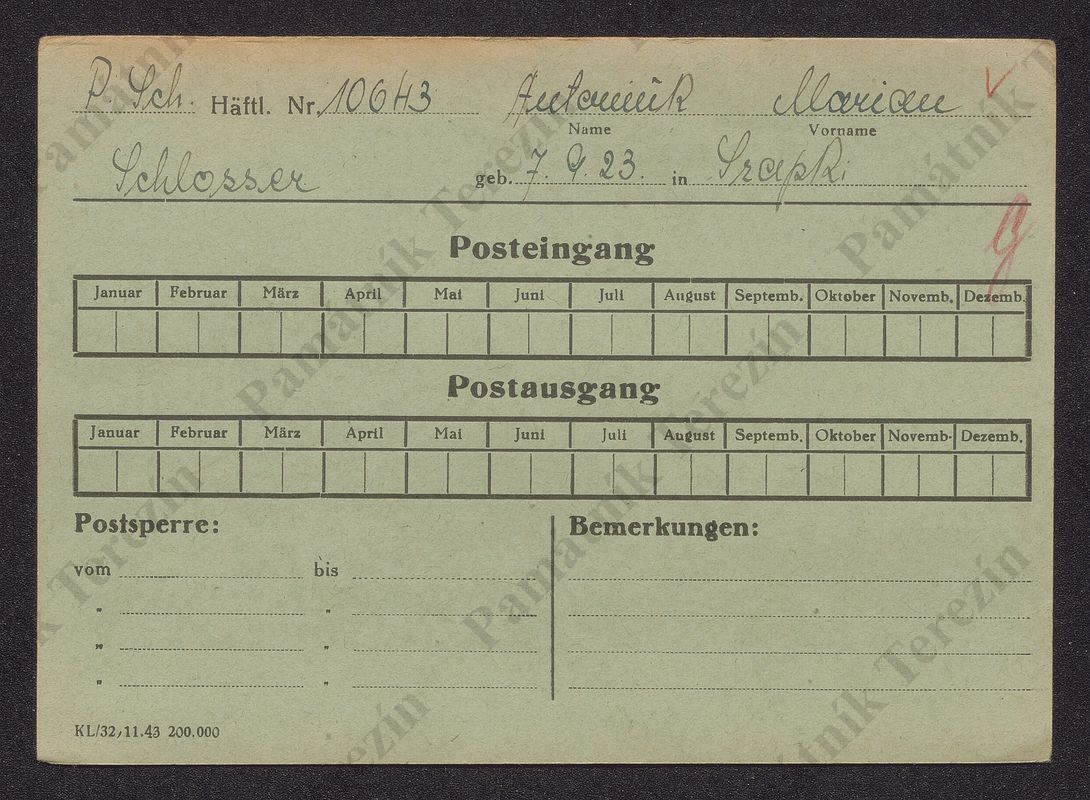 P. Sch. Häftl. Nr. 10643 Antoniuk Marian
Name Vorname
Schlosser geb. 7. 9. 23. in Srapki
Posteingang
Januar Februar März April Mai Juni Juli August Septemb. Oktober Novemb. Dezemb.
Postausgang
Januar Februar März April Mai Juni Juli August Septemb. Oktober Novemb. Dezemb.
Postsperre: Bemerkungen:
vom bis
" "
" "
" "
KL/32,11.43 200.000
Památník Terezín